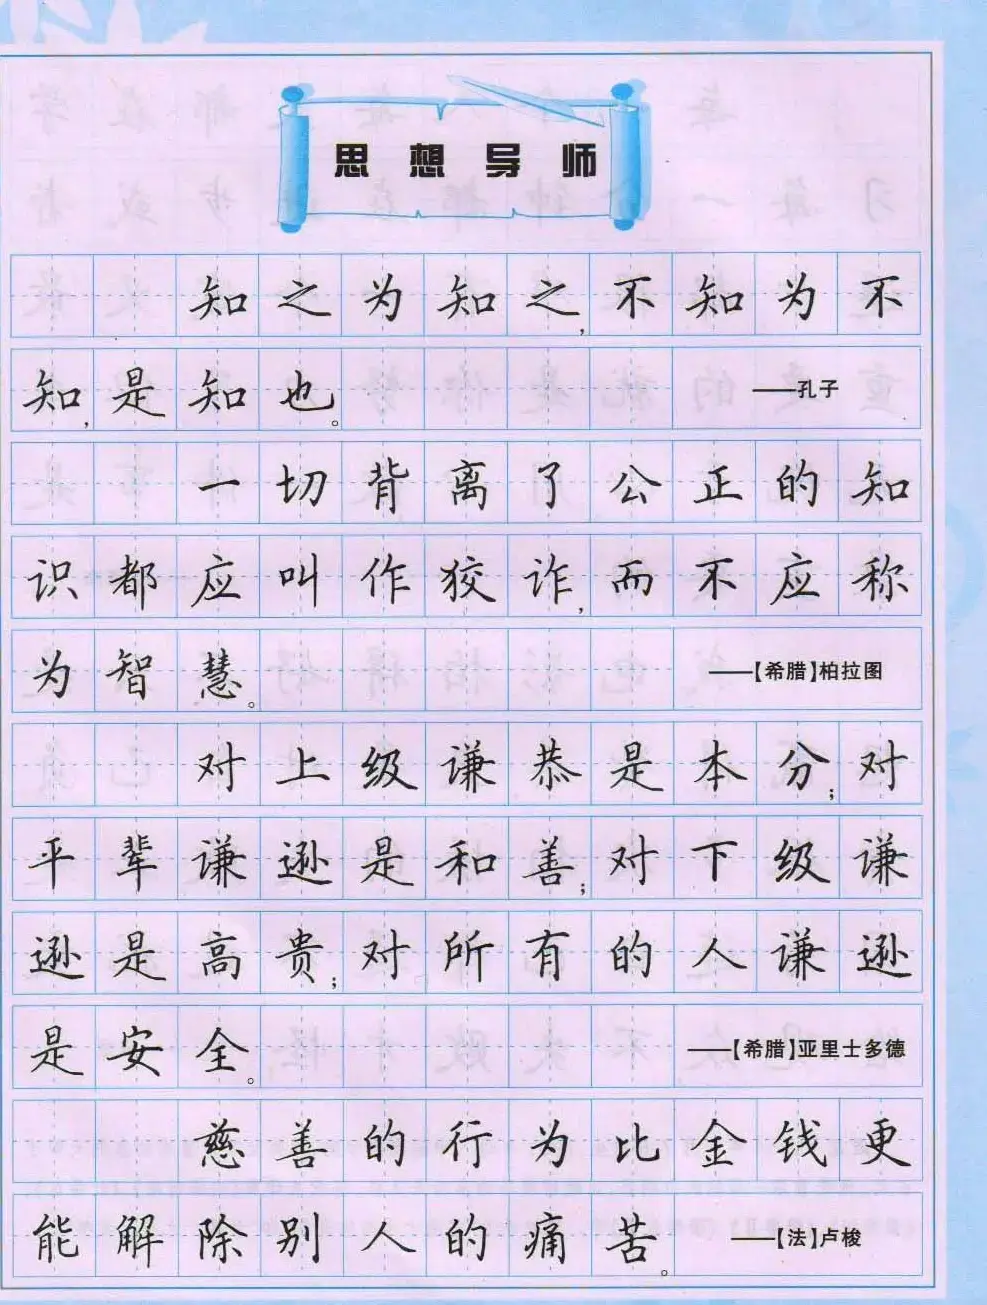 思想导师
知之为知之,不知为不
知,是知也。 ——孔子
一切背离了公正的知
识都应叫作狡诈,而不应称
为智慧。 ——【希腊】柏拉图
对上级谦恭是本分;对
平辈谦逊是和善;对下级谦
逊是高贵;对所有的人谦逊
是安全。 ——【希腊】亚里士多德
慈善的行为比金钱更
能解除别人的痛苦。 ——【法】卢梭